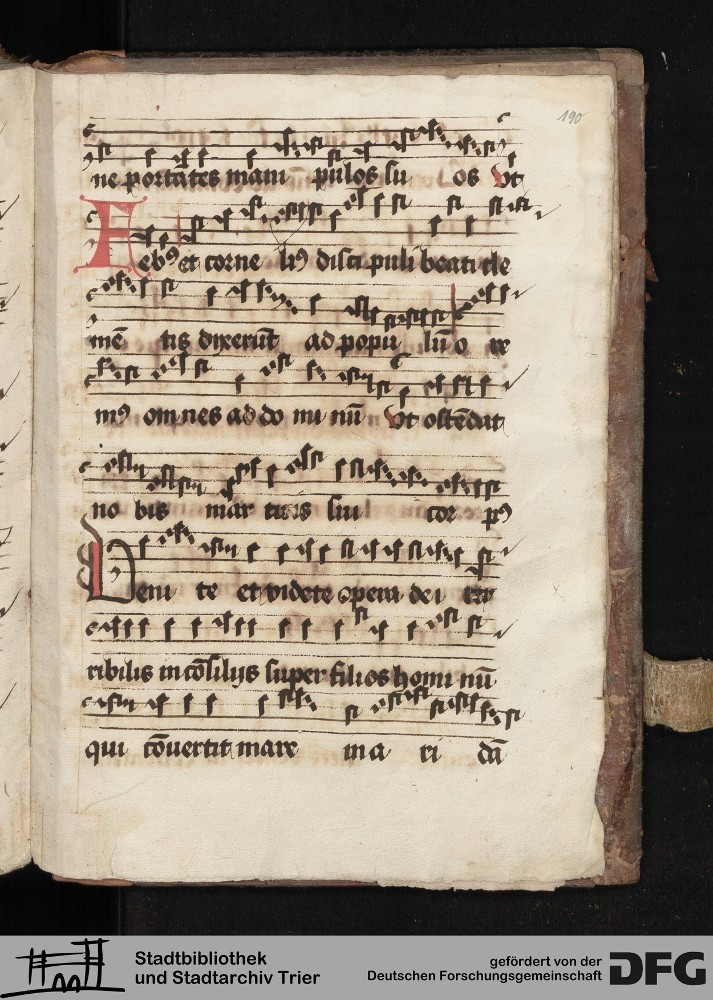 190
ne portātes mani pulos su os Vt
Febꝰ et corne liꝰ disci puli beati cle
mē tis dixerūt ad popu lū o re
mꝰ om nes ad do mi nū Vt ostēdat
no bis mar tiris sui cor pꝰ
Veni te et videte opera dei ter
ribilis in cōsilijs super filios homi nū
qui cōvertit mare in a ri dā
Stadtbibliothek
und Stadtarchiv Trier
gefördert von der
Deutschen Forschungsgemeinschaft
DFG